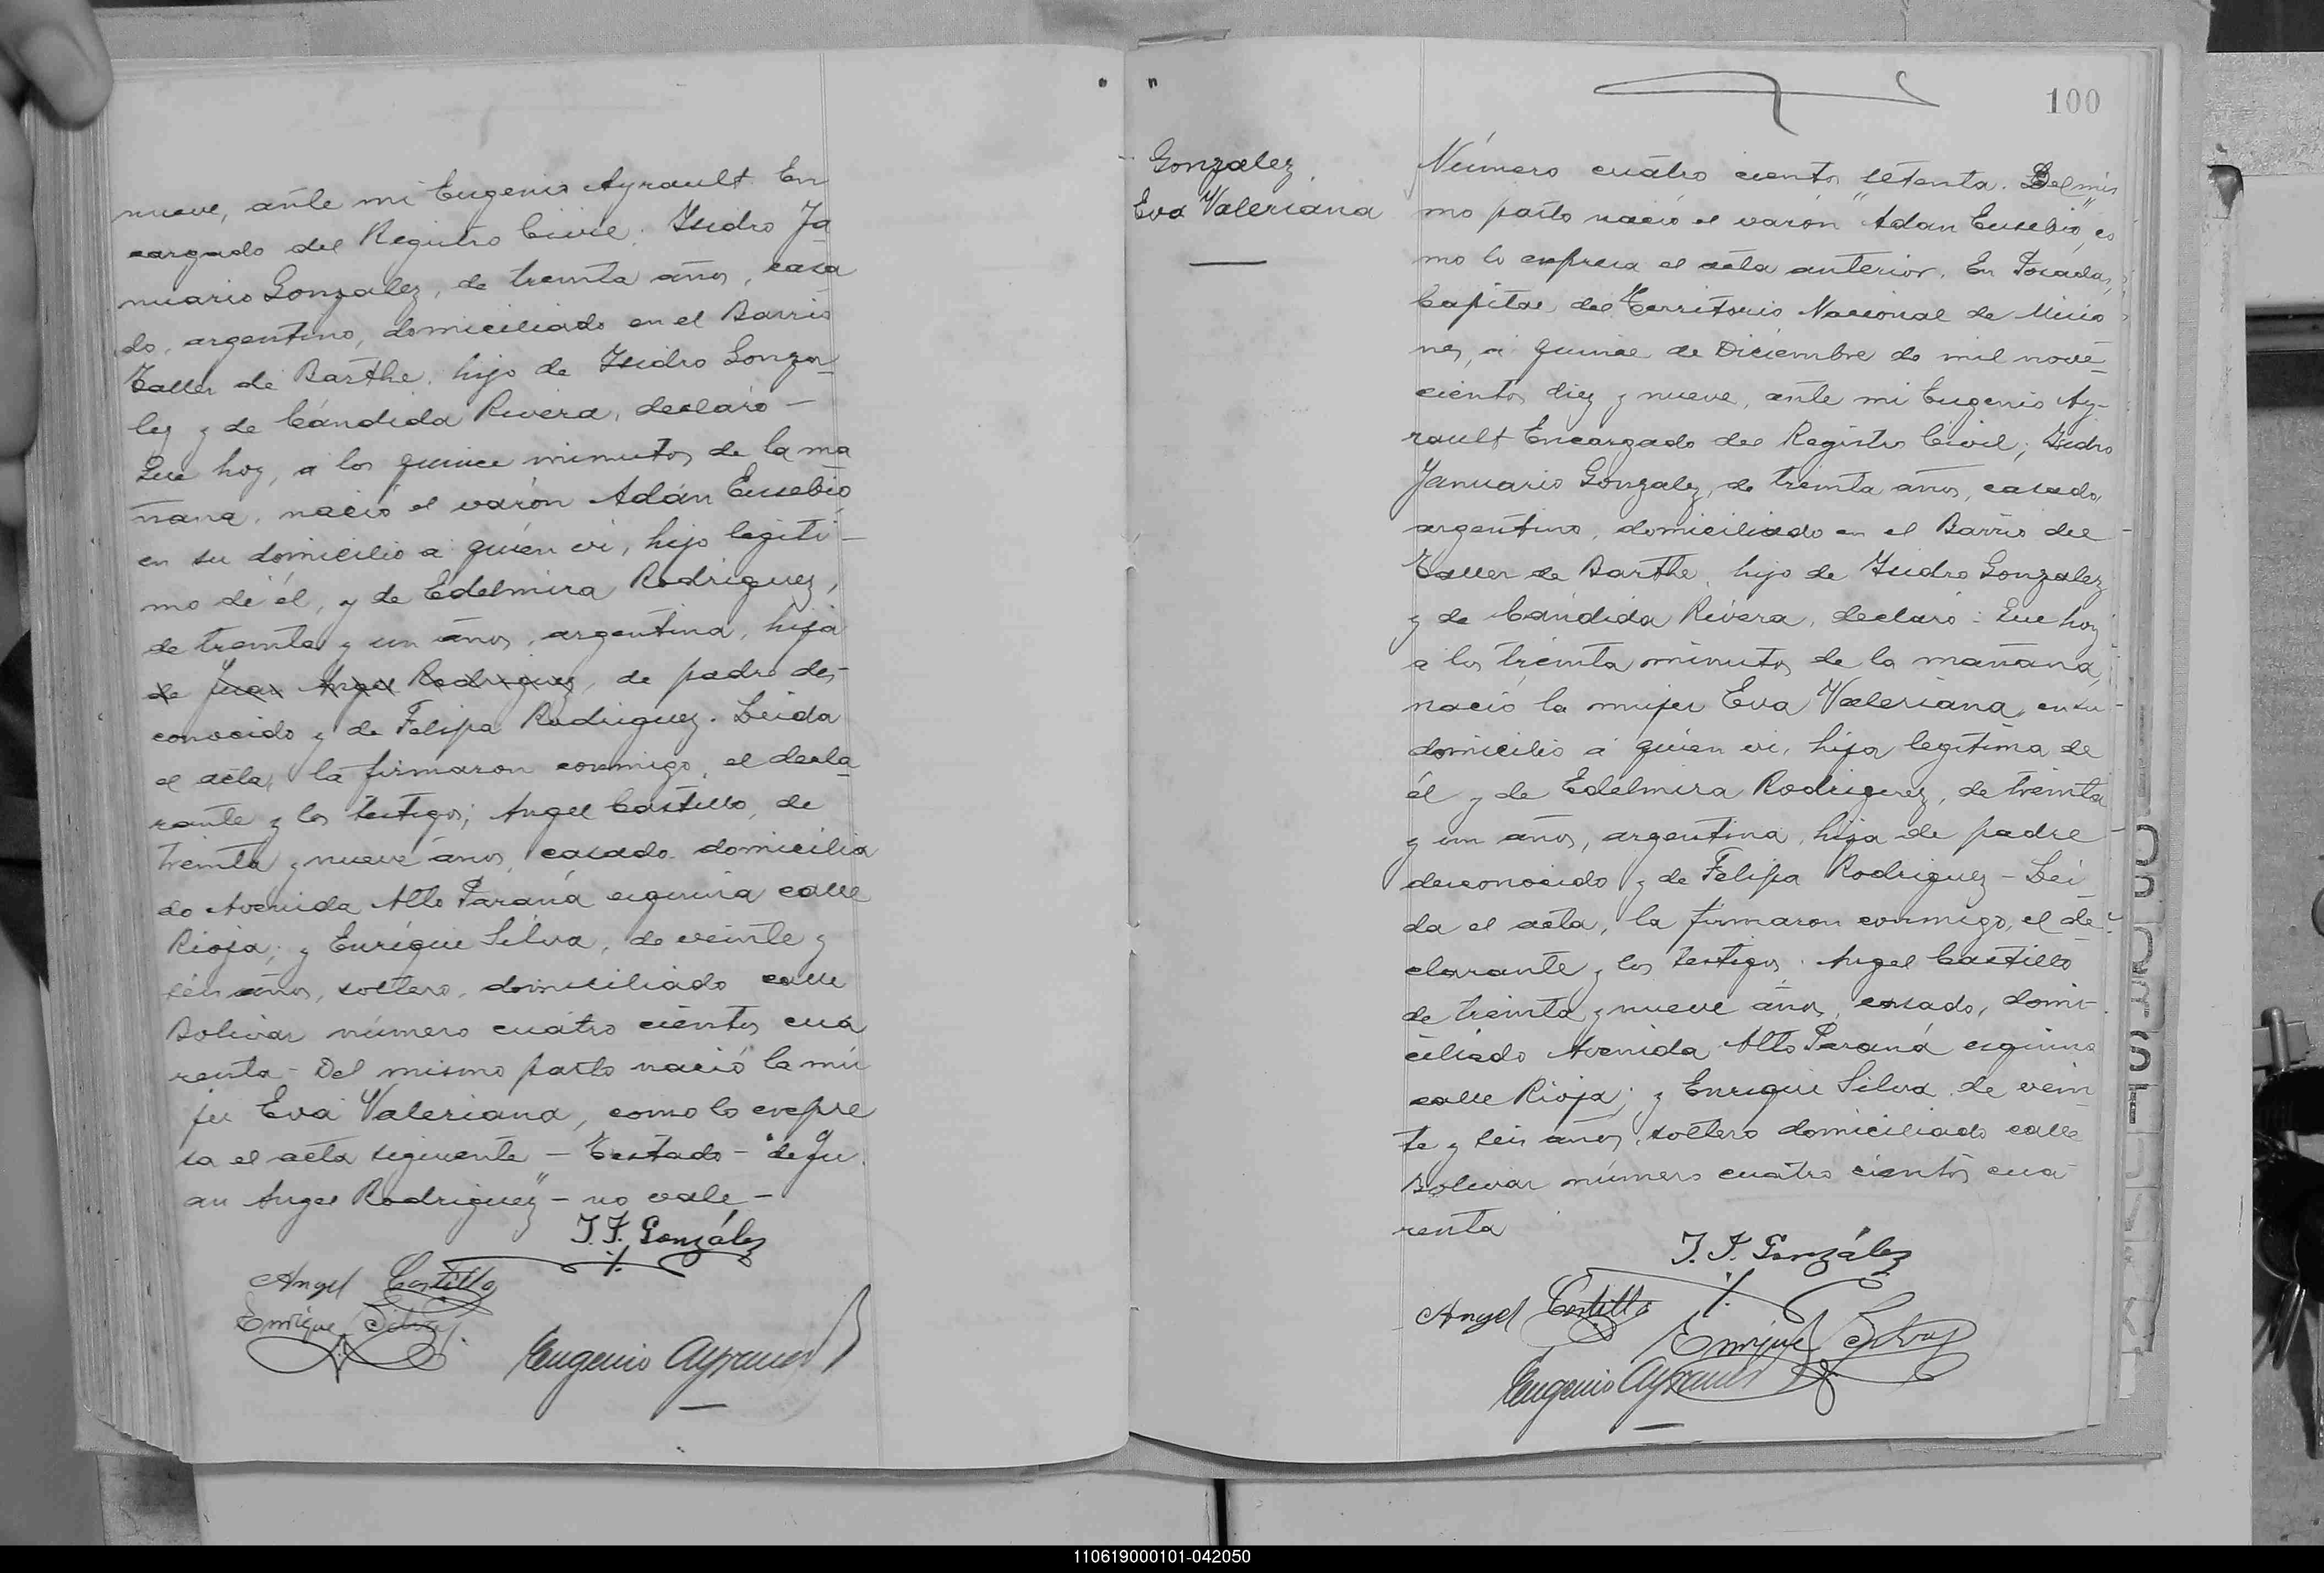 nueve, ante mi Eugenio Ayrault En
cargado del Registro Civil; Isidro Ja
nuario Gonzalez, de treinta años, casa
do, argentino, domiciliado en el Barrio
Taller de Barthe, hijo de Isidro Gonza
lez y de Cándida Rivera, declaró -
Que hoy, a los quince minutos de la ma
ñana, nació el varón Adán Eusebio
en su domicilio a quién vi, hijo legíti-
mo de él, y de Edelmira Rodriguez,
de treinta y un años, argentina, hija
de Juan Angel Rodriguez, de padre des-
conocido y de Felipa Rodriguez. Leida
el acta, la firmaron conmigo, el decla
rante y los testigos; Angel Castillo, de
treinta y nueve años, casado domicilia
do Avenida Alto Paraná esquina calle
Rioja; y Enrique Silva, de veinte y
séis años, soltero, domiciliado calle
Bolivar número cuatro cientos cua
renta - Del mismo parto nació la mu
jer Eva Valeriana, como lo expre
sa el acta siguiente - Testado - "de Ju
an Angel Rodriguez" - no vale -
J. I. González
Angel Castillo
Enrique Silva
Eugenio Ayrault
100
Gonzalez
Eva Valeriana
Número cuatro cientos setenta. Del mis
mo parto nació el varón "Adan Eusebio", co
mo lo expresa el acta anterior. En Posadas,
Capital del Territorio Nacional de Misio
nes, a quince de Diciembre de mil nove-
cientos diez y nueve, ante mi Eugenio Ay-
rault Encargado del Registro Civil; Isidro
Januario Gonzalez, de treinta años, casado,
argentino, domiciliado en el Barrio del
Taller de Barthe, hijo de Isidro Gonzalez
y de Cándida Rivera, declaró: Que hoy
a los treinta minutos de la mañana,
nació la mujer Eva Valeriana, en su
domicilio a quien vi, hija legítima de
él y de Edelmira Rodriguez, de treinta
y un años, argentina, hija de padre
desconocido y de Felipa Rodriguez - Lei
da el acta, la firmaron conmigo, el de-
clarante y los testigos. Angel Castillo
de treinta y nueve años, casado, domi-
ciliado Avenida Alto Paraná esquina
calle Rioja; y Enrique Silva de vein
te y seis años, soltero domiciliado calle
Bolivar número cuatro cientos cua
renta
J. I. González
Angel Castillo
Enrique Silva
Eugenio Ayrault
110619000101-042050